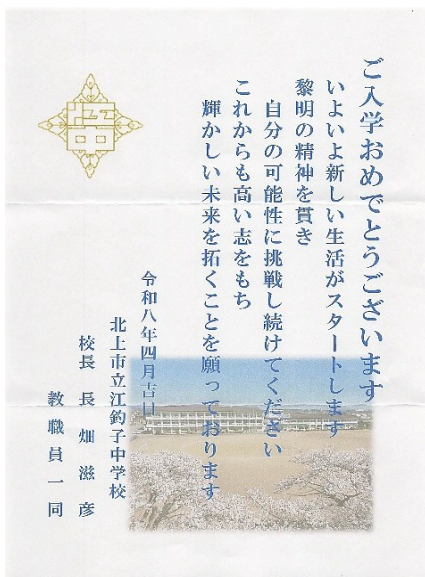 ご入学おめでとうございます
いよいよ新しい生活がスタートします
黎明の精神を貫き
自分の可能性に挑戦し続けてください
これからも高い志をもち
輝かしい未来を拓くことを願っております
令和八年四月吉日
北上市立江釣子中学校
校長 長畑滋彦
教職員一同